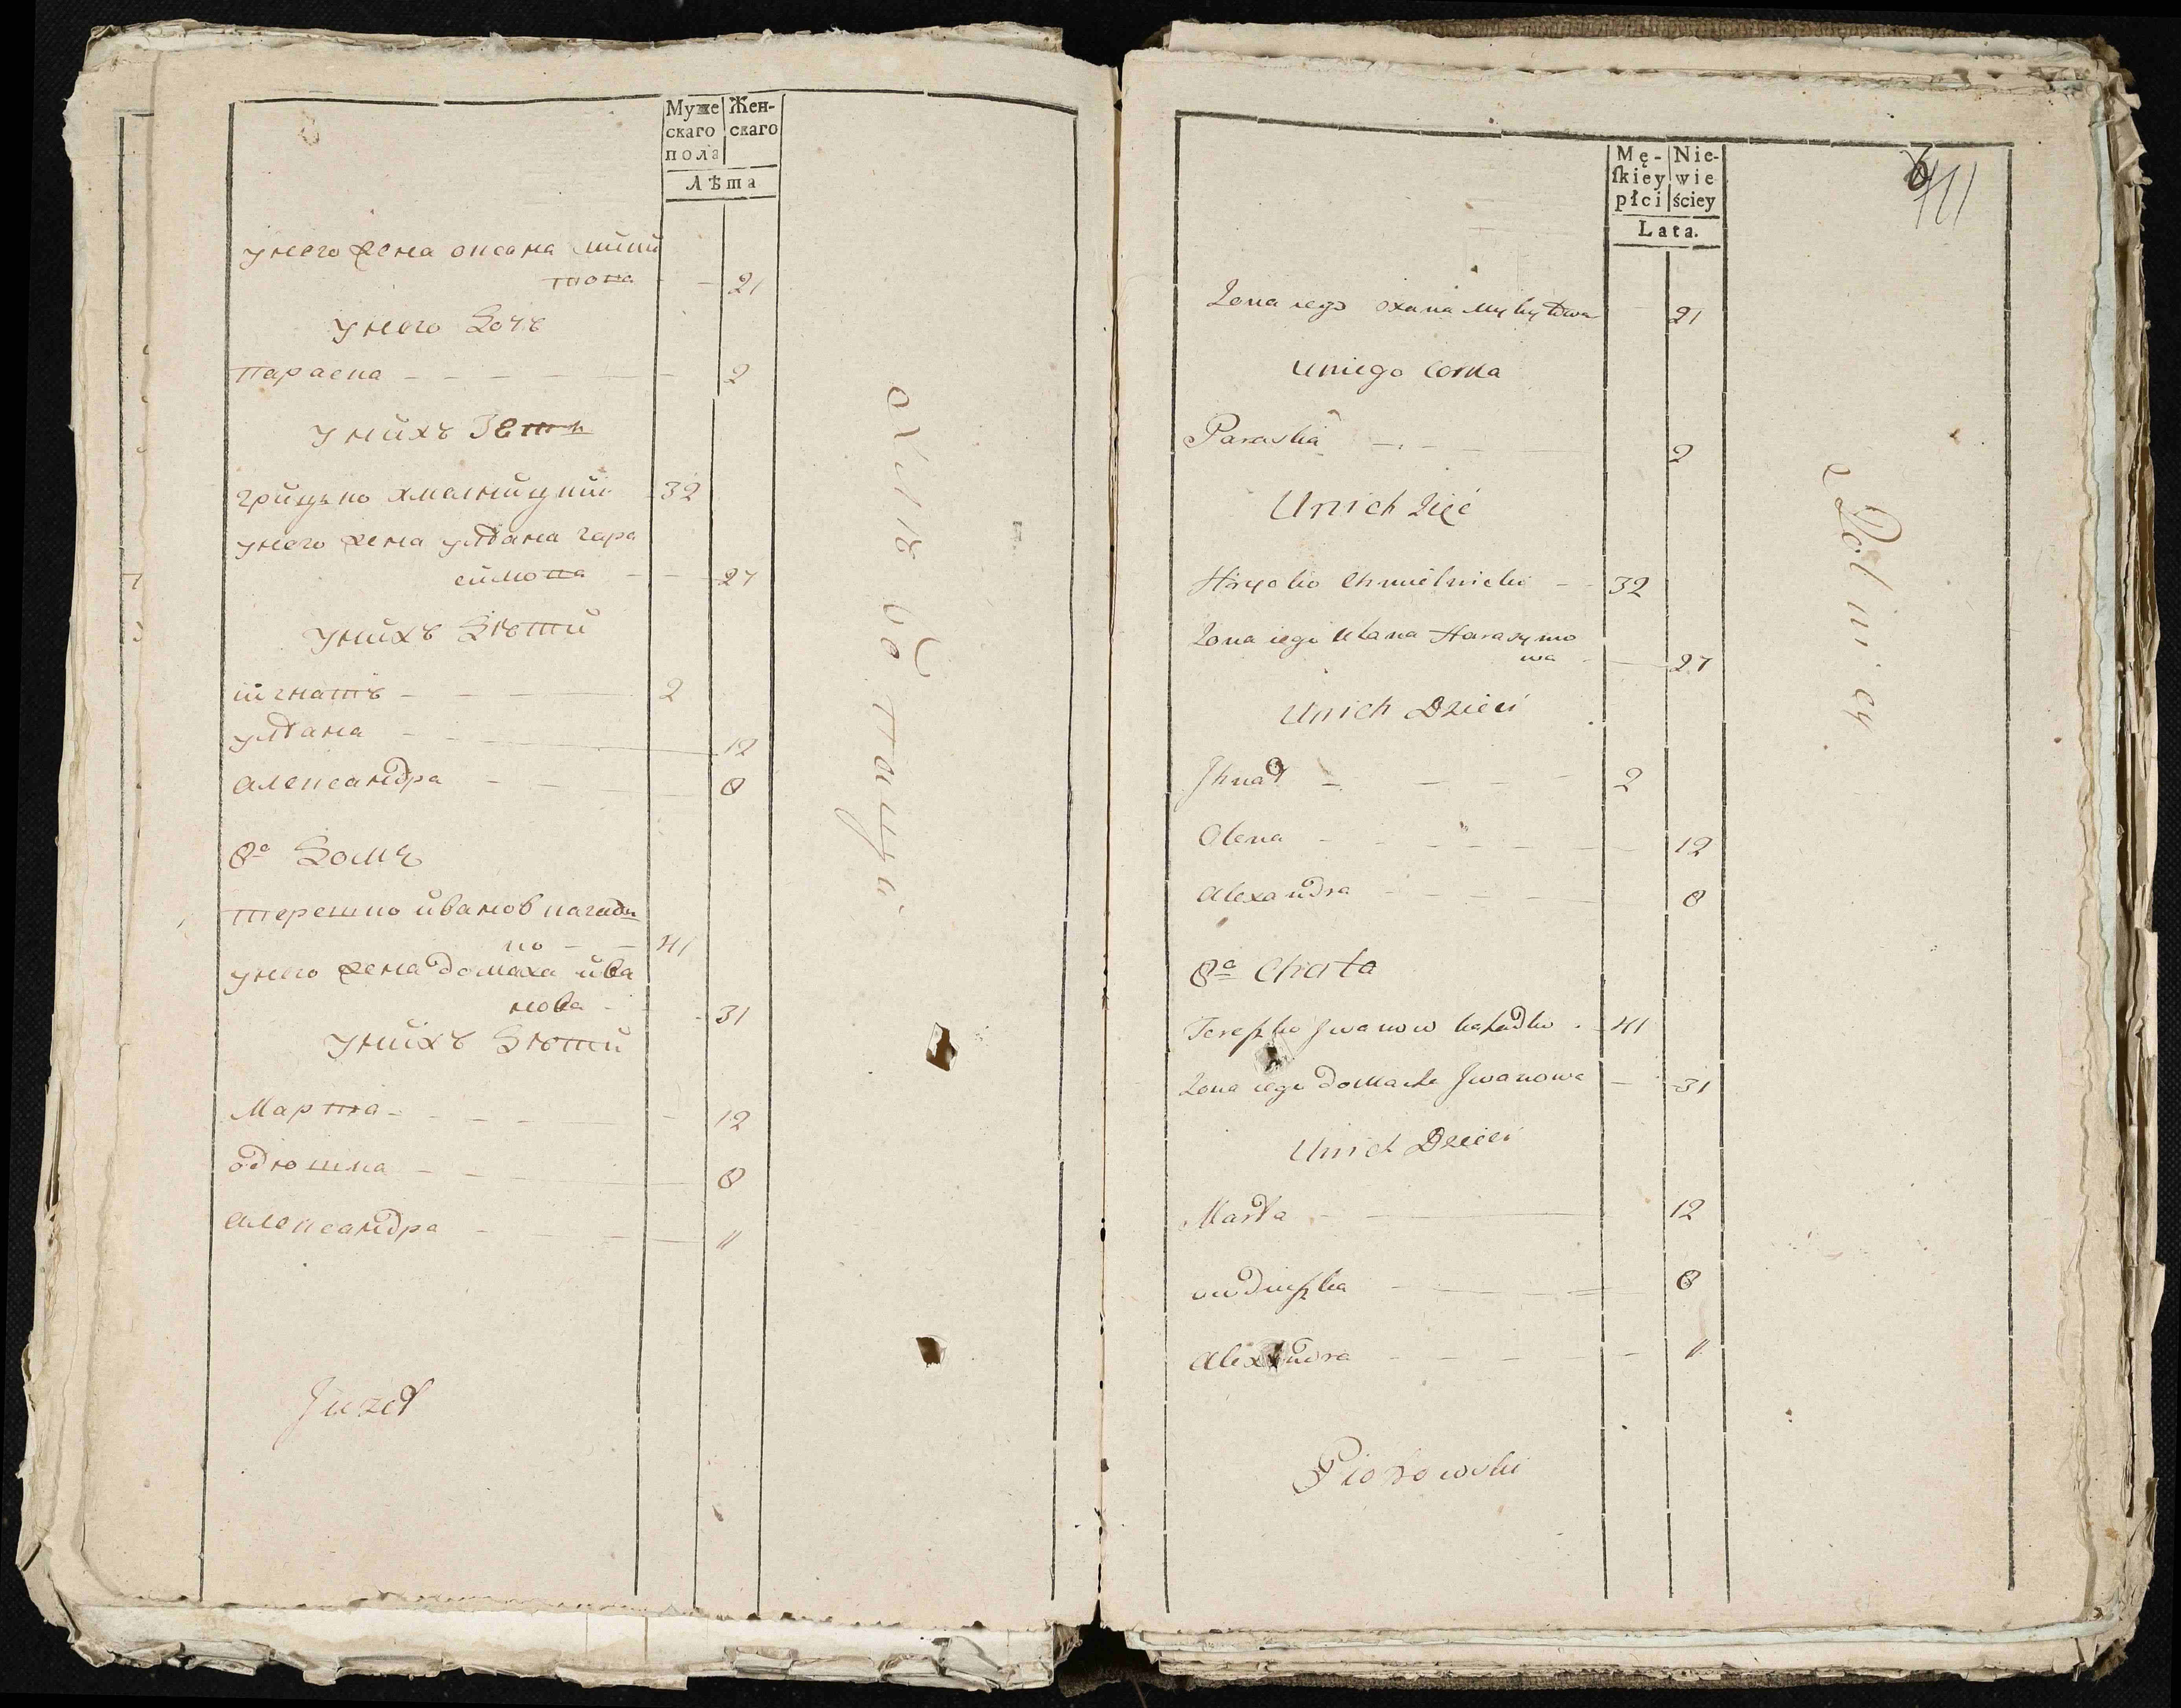 Муже Жен-
скаго скаго
пола
Лѣта
унего жена оксана мики
това - - 21
унего Дочъ
параска - - - - - 2
унихъ Зеть
грицько хмелницкий 32
унего жена улѣана гара
симова - - 27
унихъ Дѣти
игнатъ - - - 2
улѣана - - - 12
александра - - - 8
8а Домъ
терешко иванов кагадл
ко - - 41
унего жена домаха ива
нова - 31
унихъ Дѣти
Марта - - - - 12
одюшка - - - 8
александра - - - - "
Juzef
Mę- Nie-
ſkiey wie
płci ściey
Lata.
411
Żona iego oxana Mykytowa 21
Uniego Corka
Paraska - - - 2
Unich Zięć
Hrycko Chmielnicki - - 32
Żona iego Ulana Harasymo
wa - - 27
Unich Dzieci
Jhnat - - - - 2
Olena - - - - - 12
Alexandra - - - - 8
8a Chata
Tereszko Jwanow kahadko - 41
Żona iego Domacha Jwanowa - 31
Unich Dzieci
Marta - - 12
owdiuszka - - - - 8
Alexandra - - - - - "
Piotrowski